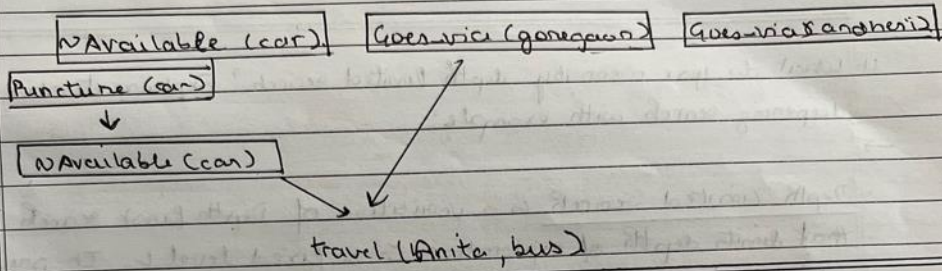 ~Available (car) Goes-via (goregaon) Goes-via(andheri)
Puncture (car)
↓
~Available (car)
travel (Anita, bus)